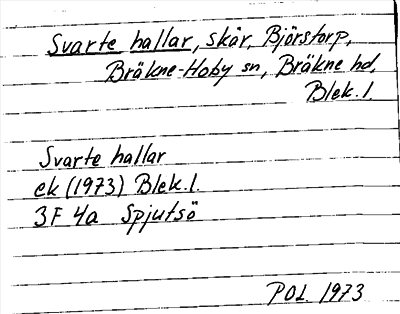 Svarte hallar, skär, Björstorp,
Bräkne-Hoby sn, Bräkne hd,
Blek. l.
Svarte hallar
ek (1973) Blek. l.
3F 4a Spjutsö
POL 1973